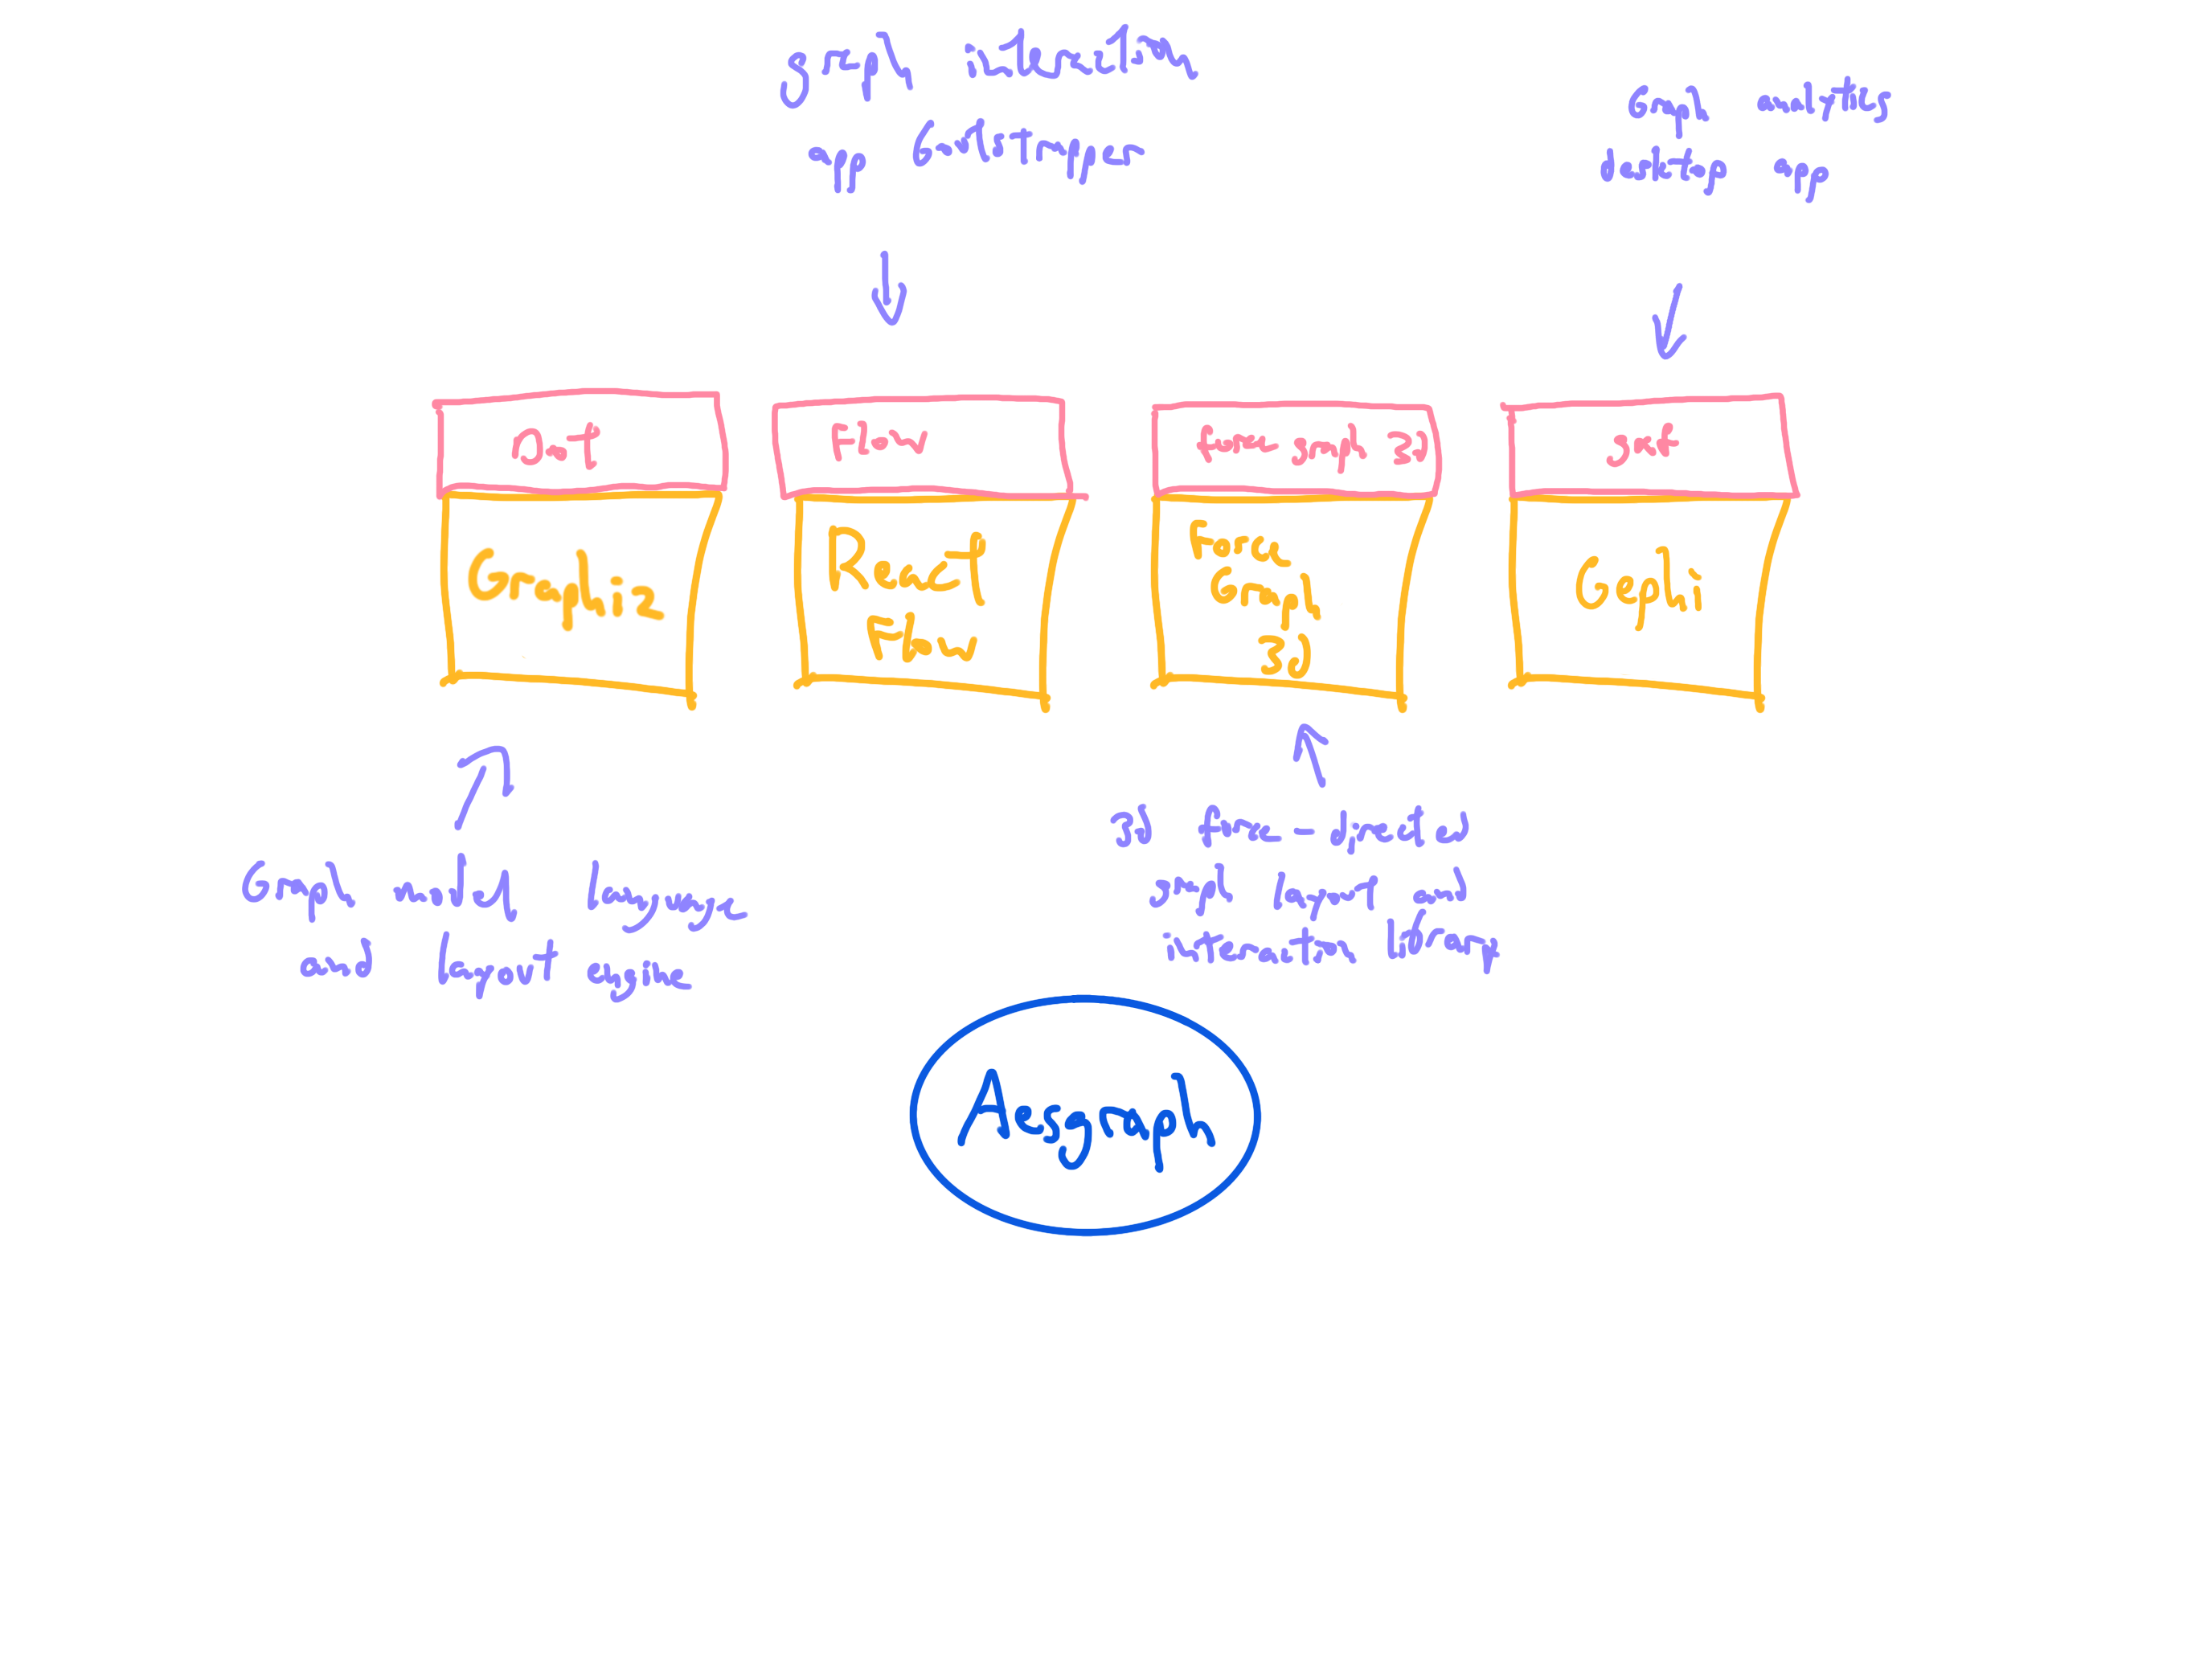 graph interaction
app bootstrapper
Graph analytics
desktop app
Dot
Flow
force graph 3D
gexf
Graphiz
React
Flow
Force
Graph
3D
Gephi
Graph modly language
and layout engine
3D force-directed
graph layout and
interaction library
Aesgraph